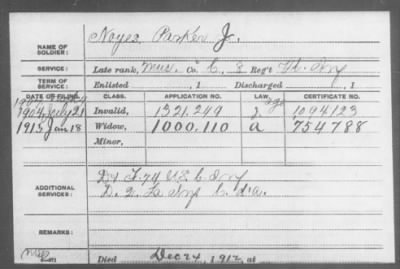 NAME OF SOLDIER: Noyes Parker J.
SERVICE: Late rank, Mus, Co. C, 8 Reg't Vt. Inf
TERM OF SERVICE: Enlisted , 1 Discharged , 1
DATE OF FILING. CLASS. APPLICATION NO. LAW. CERTIFICATE NO.
1904 July 21 Invalid, 1321,249 1094123
1913 Jan 18 Widow, 1000,110 a 754788
Minor,
ADDITIONAL SERVICES: D, 74 U.S.C. Inf
D, 2 La Inf
REMARKS:
Died Dec 24, 1912, at